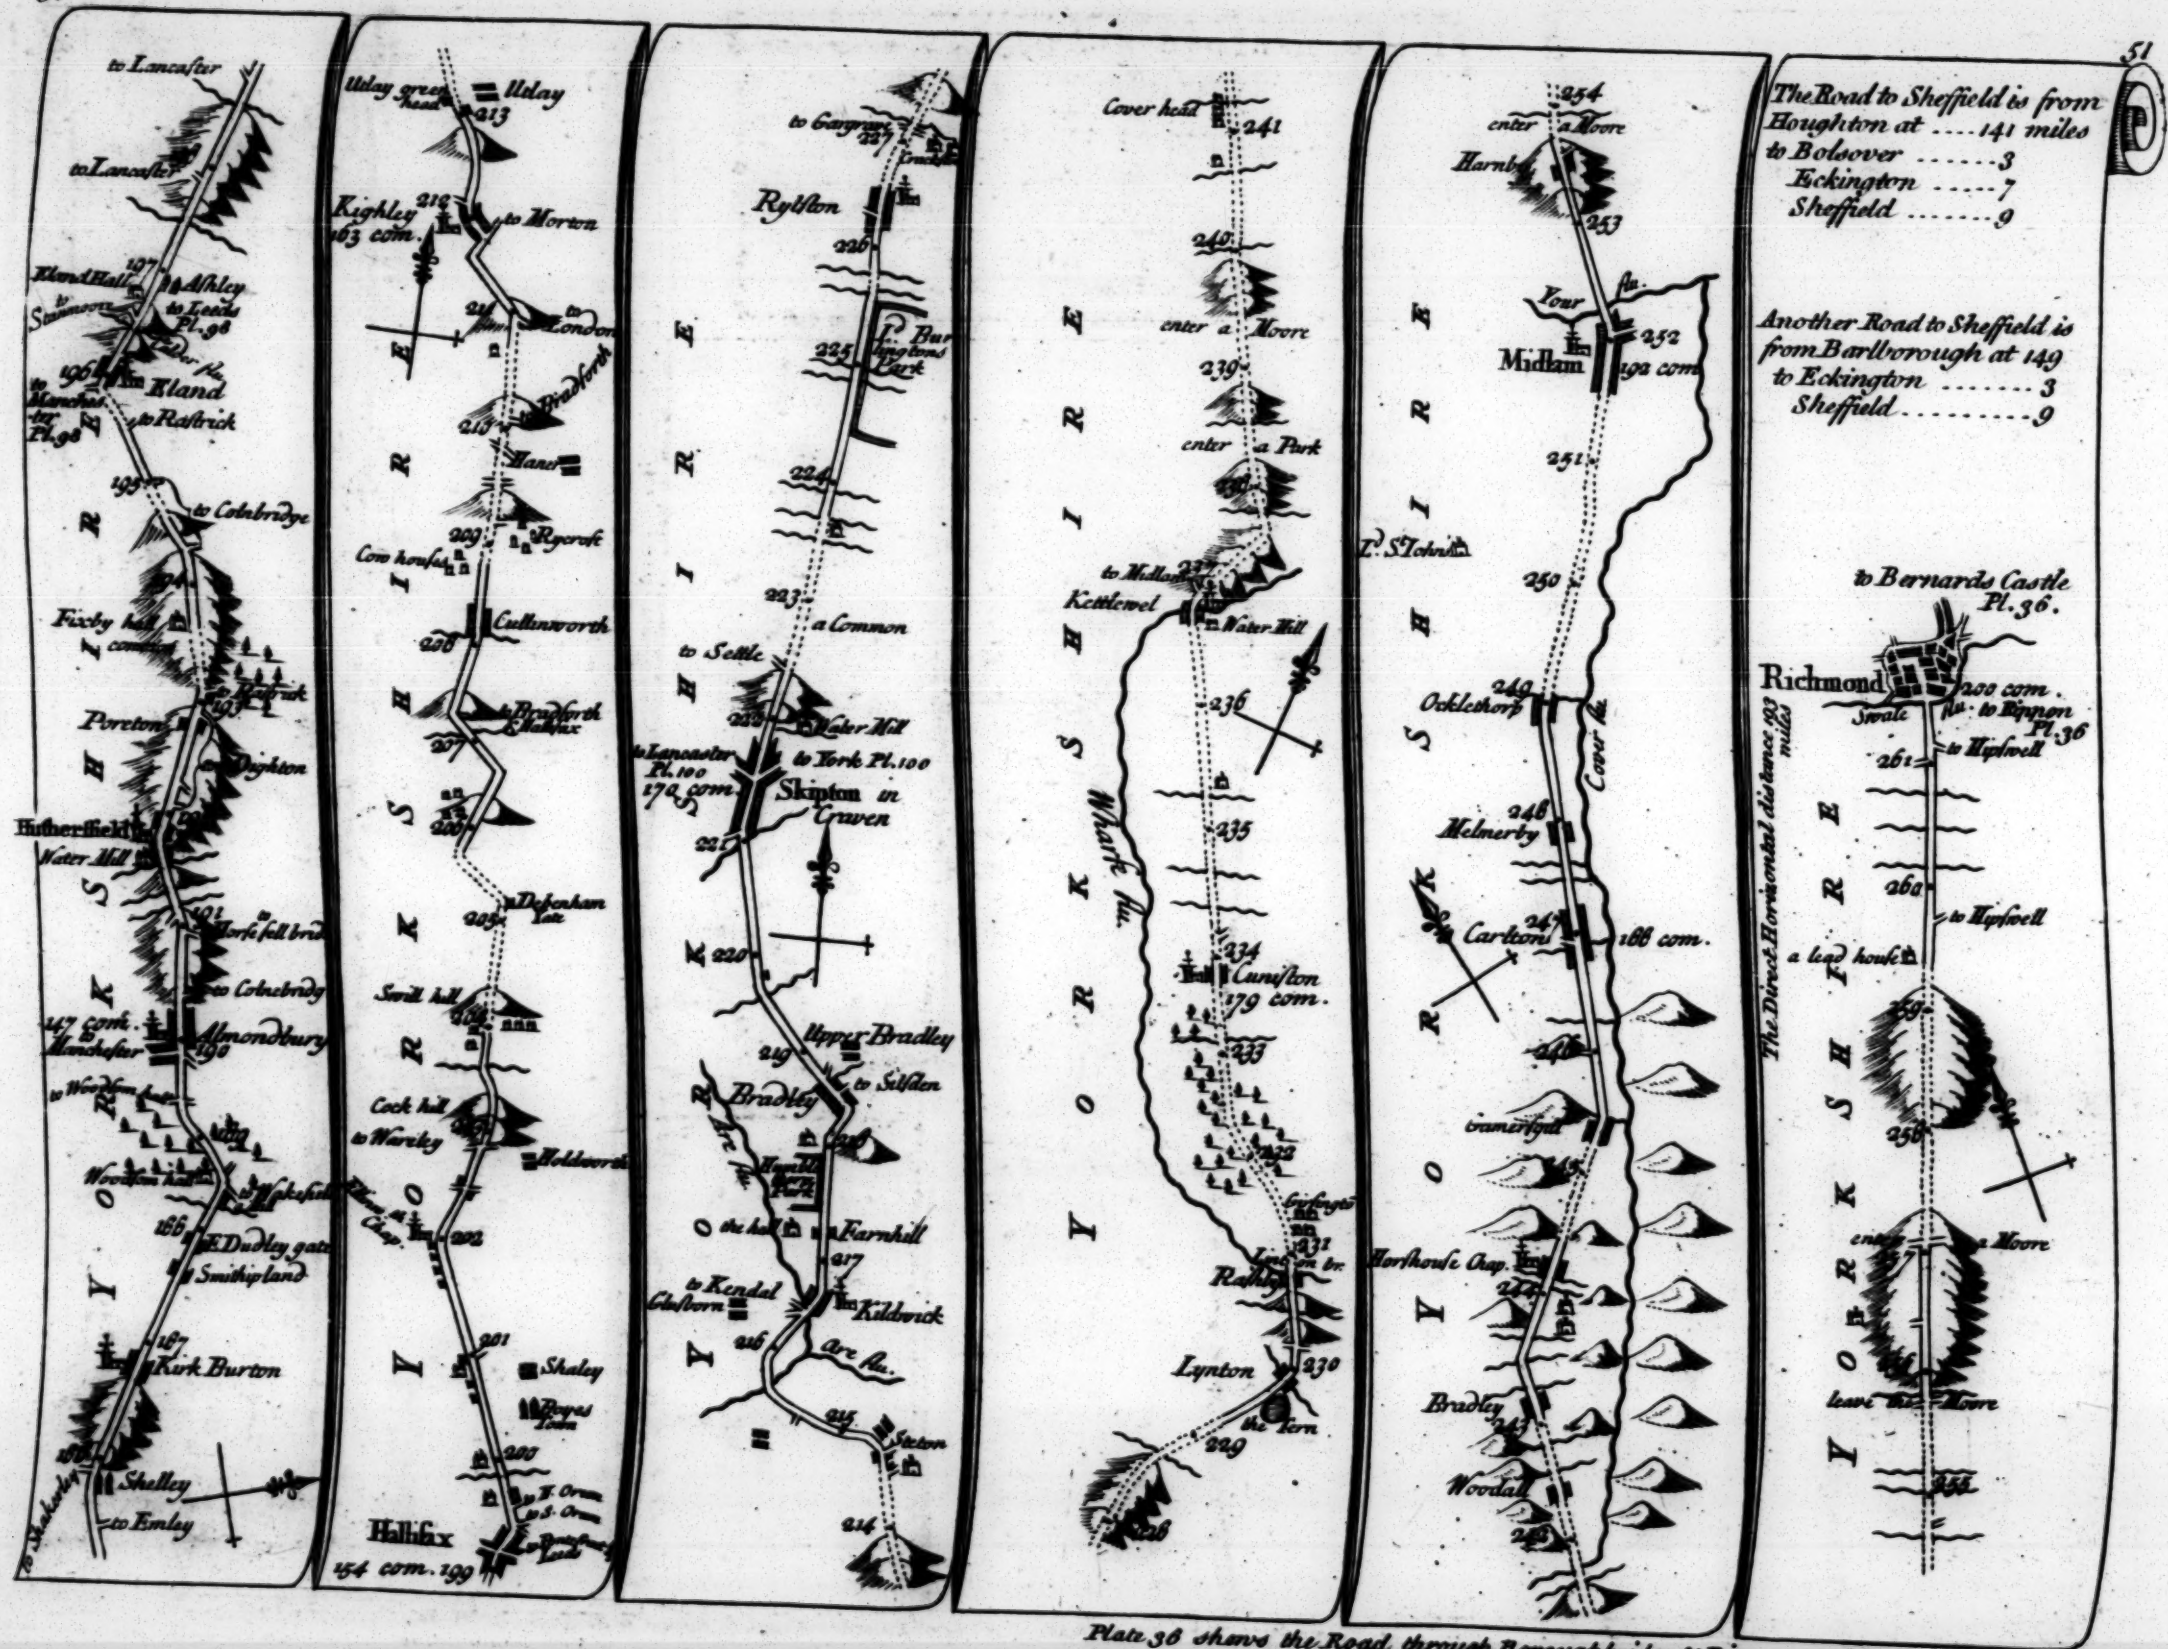 51
to Lancaster
to Lancaster
197
Eland Hall
Ashley
to
Stanmoore
to Leeds
Pl.98
Calder flu.
196
Eland
to
Manches
-ter
Pl.98
to Rastrick
195
to Colnbridge
194
Fixby hall
common
193
Poreton
to Dighton
Hutherssield
Water Mill
191
to
Horse fell brid
to Colnebridg
147 com.
to
Manchester
Almondbury
190
to Woodsom hall
189
Woodsom hall
to Wakefield
188
E Dudley gate
Smithipland
187
Kirk Burton
186
to Shakerley
Shelley
to Emley
YORKSHIRE
Utlay green
head
Utlay
213
Kighley
212
163 com.
to Morton
211
to
London
to Bradforth
210
Haner
209
Rycroft
Cow houses
Cullinworth
208
to Bradforth
& Hallifax
207
206
Debenham
Yate
205
Swill hill
204
Cock hill
to Warley
Holdsworth
202
201
Shaley
Boyes
Town
200
to N. Oram
to S. Oram
Leeds
Hallifax
154 com. 199
YORKSHIRE
to Gargrave
227
Rylston
226
Ld. Bur
lingtons
Park
225
224
223
a Common
to Settle
222
Water Mill
to Lancaster
Pl.100
170 com.
to York Pl.100
Skipton in
Craven
221
220
Upper Bradley
219
to Silsden
Bradley
218
Are flu.
Park
the hall
Farnhill
217
to Kendal
Glusborn
Kildwick
216
Are flu.
215
Steton
214
YORKSHIRE
Cover head
241
240
enter a Moore
239
enter a Park
238
237
to Midlam
Kettlewel
Water Mill
236
235
Wharfe flu.
234
Cuniston
179 com.
233
232
231
Linton br.
Lynton
230
the Tern
229
228
YORKSHIRE
254
enter a Moore
Harnby
253
Your flu.
252
Midlam
192 com
251
Ld. St Johns
250
249
Ocklethorp
Cover flu.
248
Melmerby
247
Carlton
188 com.
246
245
Horshouse Chap.
244
Bradley
243
Woodall
242
YORKSHIRE
The Road to Sheffield is from
Houghton at ....141 miles
to Bolsover .......3
Eckington .....7
Sheffield ........9
Another Road to Sheffield is
from Barlborough at 149
to Eckington .......3
Sheffield..........9
to Bernards Castle
Pl.36.
Richmond
200 com.
Swale flu.
to Rippon
Pl.36
The Direct Horizontal distance 193
miles
to Hipswell
261
260
to Hipswell
a lead house
259
258
enter a Moore
257
leave the Moore
255
YORKSHIRE
Plate 36 shews the Road through